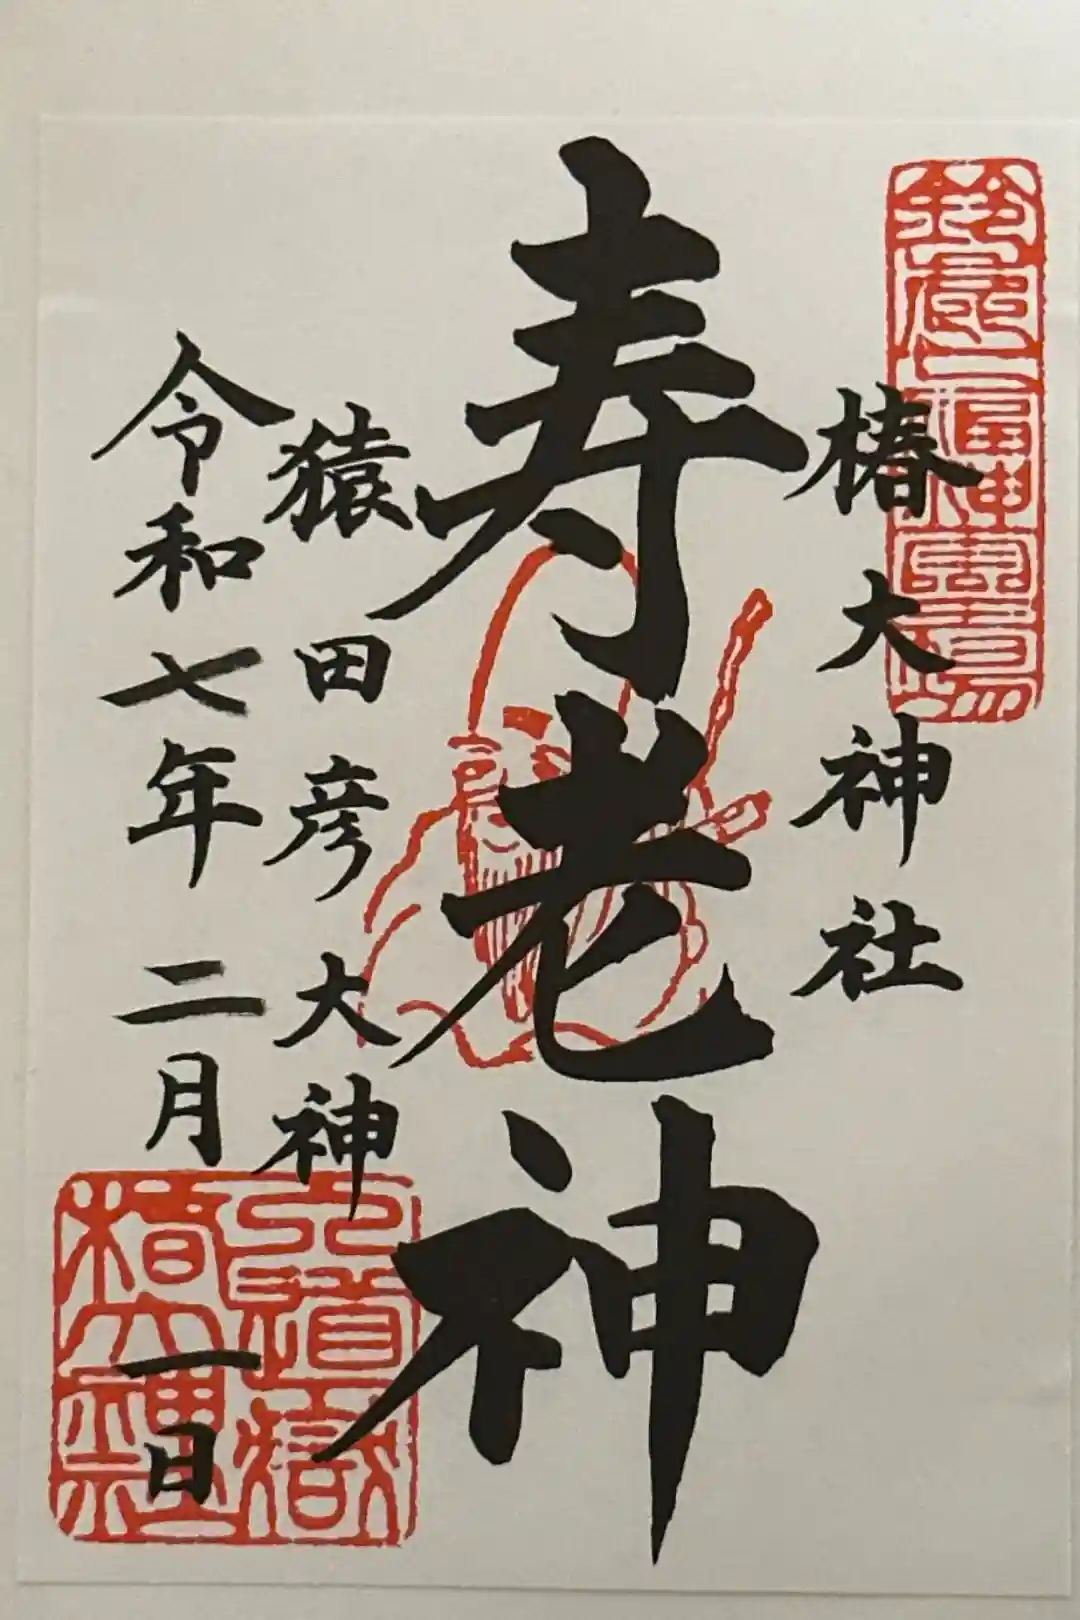 椿大神社
寿老神
猿田彦大神
令和七年二月一日